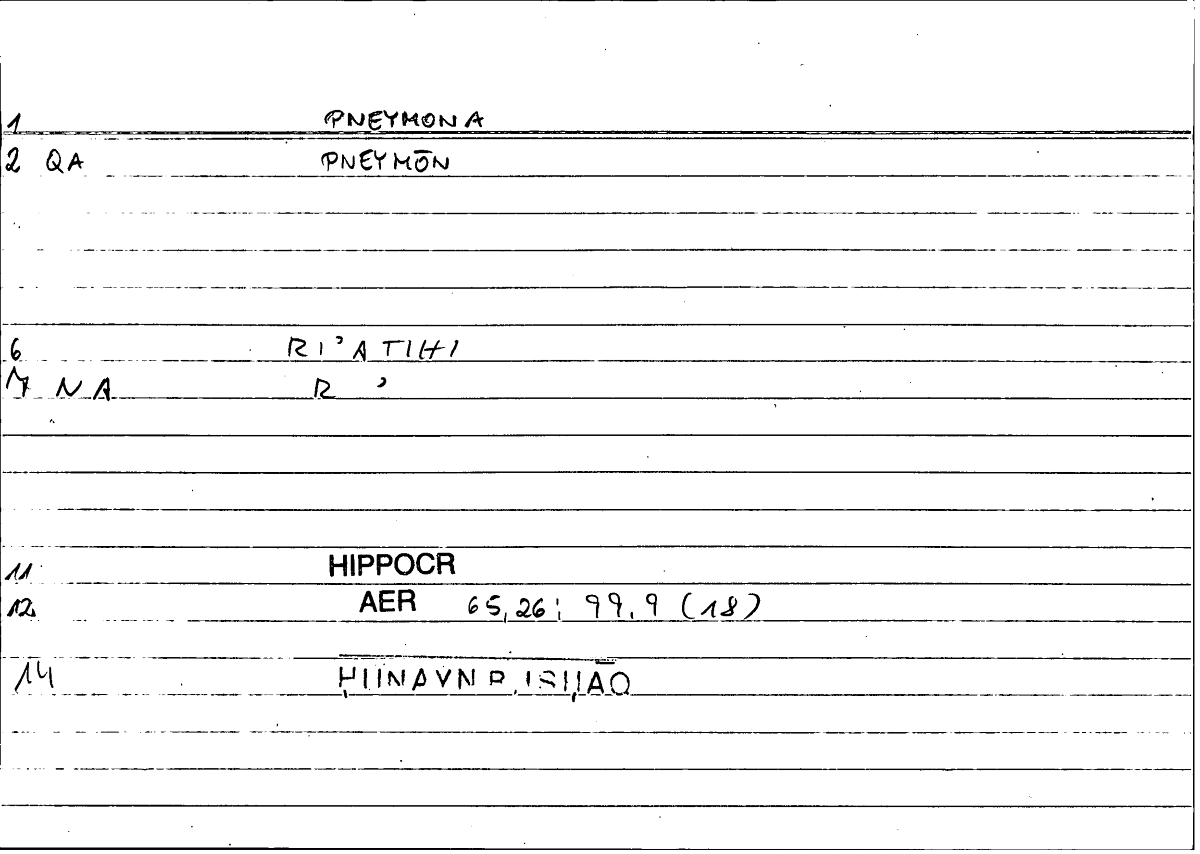 1 PNEYMONA
2 QA PNEYMŌN
6 RI'ATIHI
7 NA R '
11 HIPPOCR
12 AER 65,26; 99,9 (18)
14